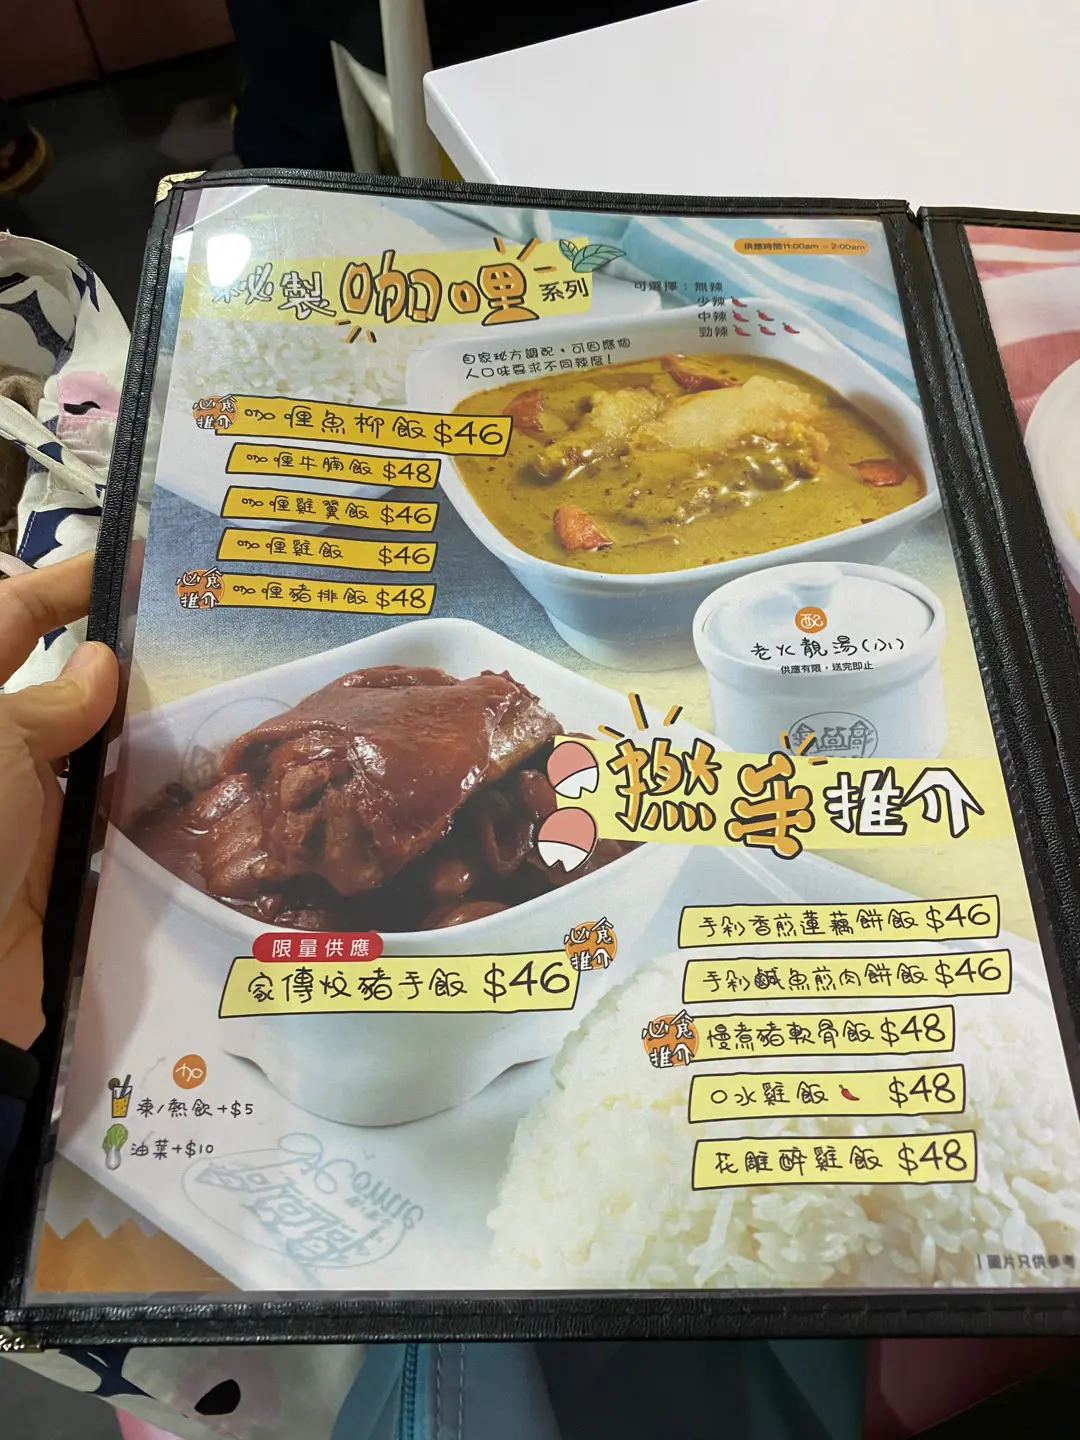 供應時間11:00am - 2:00am
秘製咖喱系列
可選擇：無辣
少辣
中辣
勁辣
自家秘方調配，可因應個
人口味要求不同辣度！
必食推介
咖喱魚柳飯 $46
咖喱牛腩飯 $48
咖喱雞翼飯 $46
咖喱雞飯 $46
必食推介
咖喱豬排飯 $48
配
老火靚湯(小)
供應有限，送完即止
推介
限量供應
家傳炆豬手飯 $46
必食推介
手剁香煎蓮藕餅飯 $46
手剁鹹魚煎肉餅飯 $46
必食推介
慢煮豬軟骨飯 $48
口水雞飯 $48
花雕醉雞飯 $48
加
凍/熱飲+$5
油菜+$10
圖片只供參考